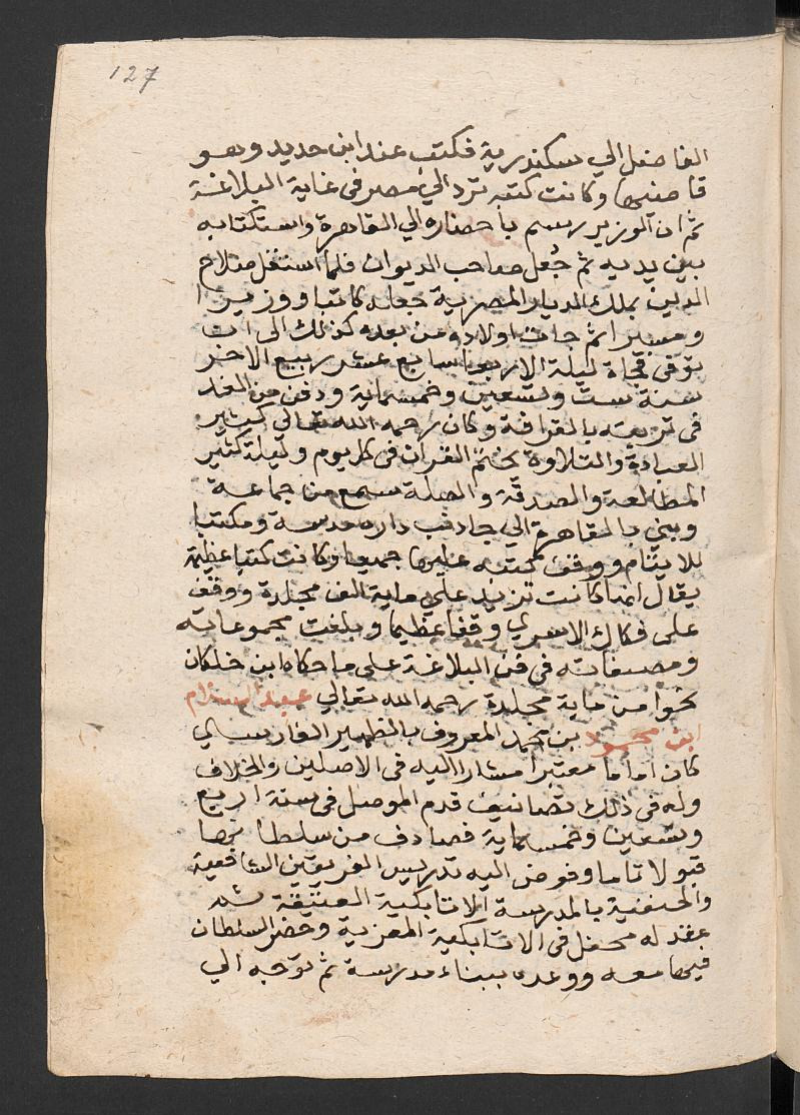 127
الفاضل الي سكندرية فكتب عند ابن حديد وهو
قاضيها وكانت كتبه ترد الي مصر في غاية البلاغة
ثم ان الوزير رسم باحضاره الي القاهرة واستكتابه
بين يديه ثم جعل صاحب الديوان فلما استقل صلاح
الدين بملك الديار المصرية جعله كاتبا ووزيرا
ومشيرا ثم جات اولاده من بعده كذلك الى ان
توفى فجاة ليلة الاربعا سابع عشر ربيع الاخر
سنة ست وتسعين وخمسماية ودفن من الغد
في تربته بالقرافة وكان رحمه الله تعالي كثير
العبادة والتلاوة يختم القران في كل يوم وليلة كثير
المطالعة والصدقة والصلة سمع من جماعة
وبنى بالقاهرة الي جانب داره مدرسة ومكتبا
للايتام ووقف كتبه عليها جميعا وكانت كتبا عظيمة
يقال انها كانت تزيد علي ماية الف مجلدة ووقف
على فكاك الاسري وقفا عظيما وبلغت مجموعاته
ومصنفاته في فن البلاغة على ما حكاه ابن خلكان
نحوا من ماية مجلدة رحمه الله تعالي عبد السلام
ابن محمود بن محمد المعروف بالظهير الفارسي
كان اماما معتبرا مشارا اليه في الاصلين والخلاف
وله في ذلك تصانيف قدم الموصل في سنة اربع
وتسعين وخمسماية فصادف من سلطانها
قبولا تاما وفوض اليه تدريس الفريقين الشافعية
والحنفية بالمدرسة الاتابكية العتيقة ثم
عقد له محفل في الاتابكية المعزية وحضر السلطان
فيها معه ووعده ببناء مدرسة ثم توجه الي